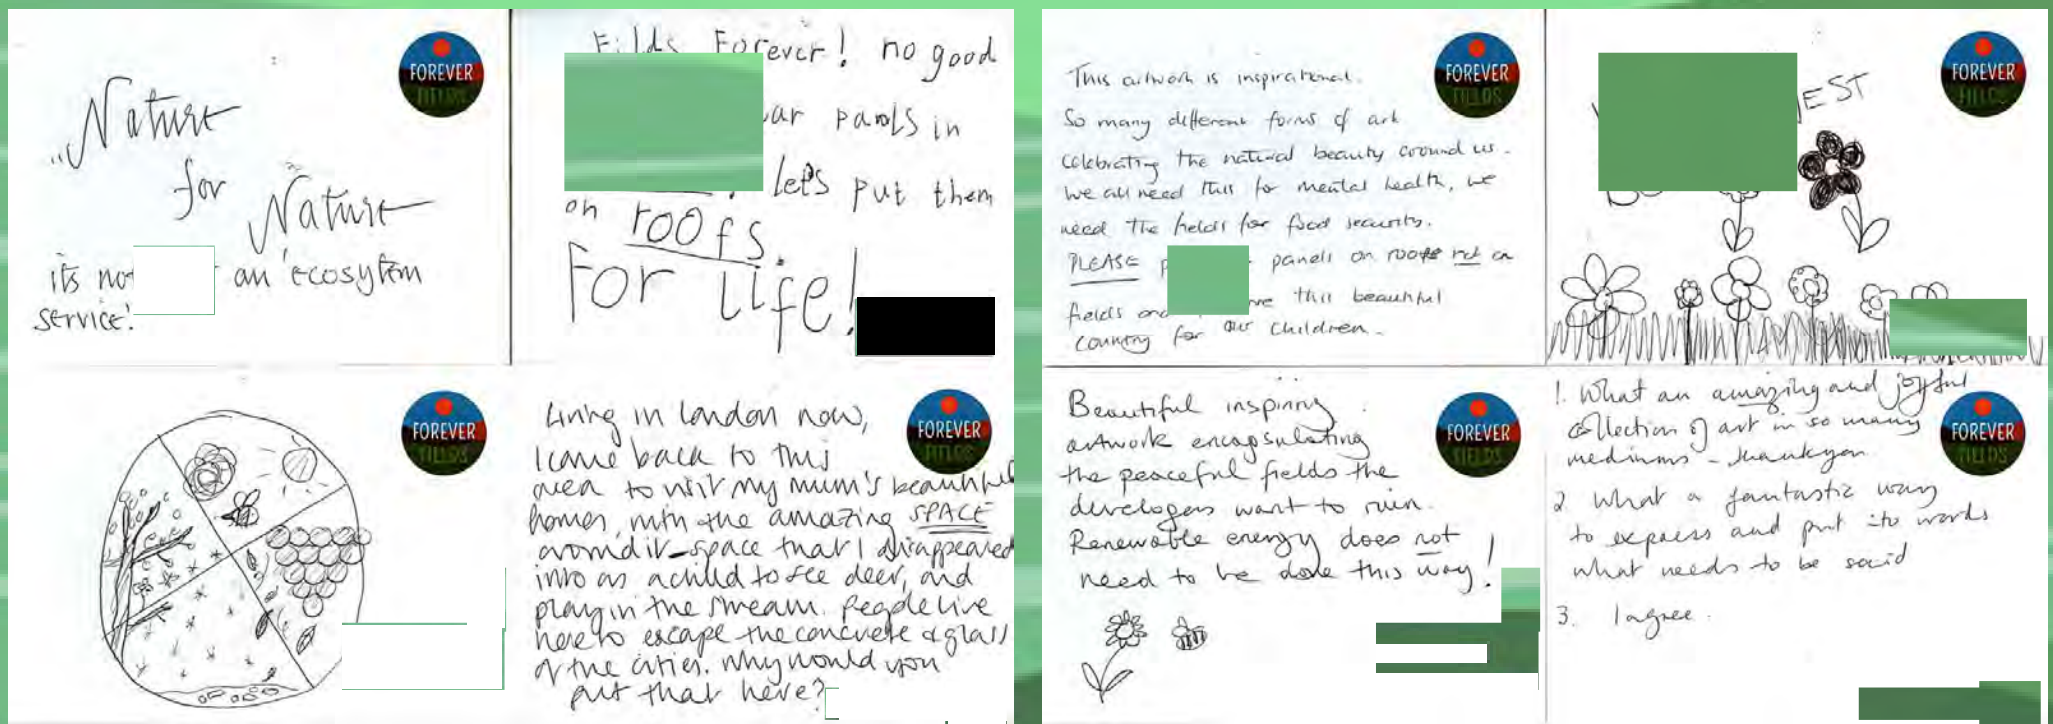 FOREVER
FIELDS
"Nature
for
Nature
its not an ecosytem
service!
Filds Forever! no good
panols in
let's put them
on roofs.
For life!
FOREVER
FIELDS
Living in London now,
I come back to this
area to visit my mum's beautiful
homes, with the amazing SPACE
around it - space that I disappeared
into as a child to see deer, and
play in the stream. People live
here to escape the concrete & glass
of the cities. Why would you
put that here?
FOREVER
FIELDS
FOREVER
FIELDS
This artwork is inspirational.
So many different forms of art
celebrating the natural beauty around us.
We all need this for mental health, we
need the fields for food security.
PLEASE panels on roofs not on
fields and this beautiful
country for our children.
FOREVER
FIELDS
Beautiful inspiring
artwork encapsulating
the peaceful fields the
developers want to ruin.
Renewable energy does not
need to be done this way!
FOREVER
FIELDS
1. What an amazing and joyful
collection of art in so many
mediums - thankyou
2 What a fantastic way
to express and put into words
what needs to be said
3. I agree.
FOREVER
FIELDS